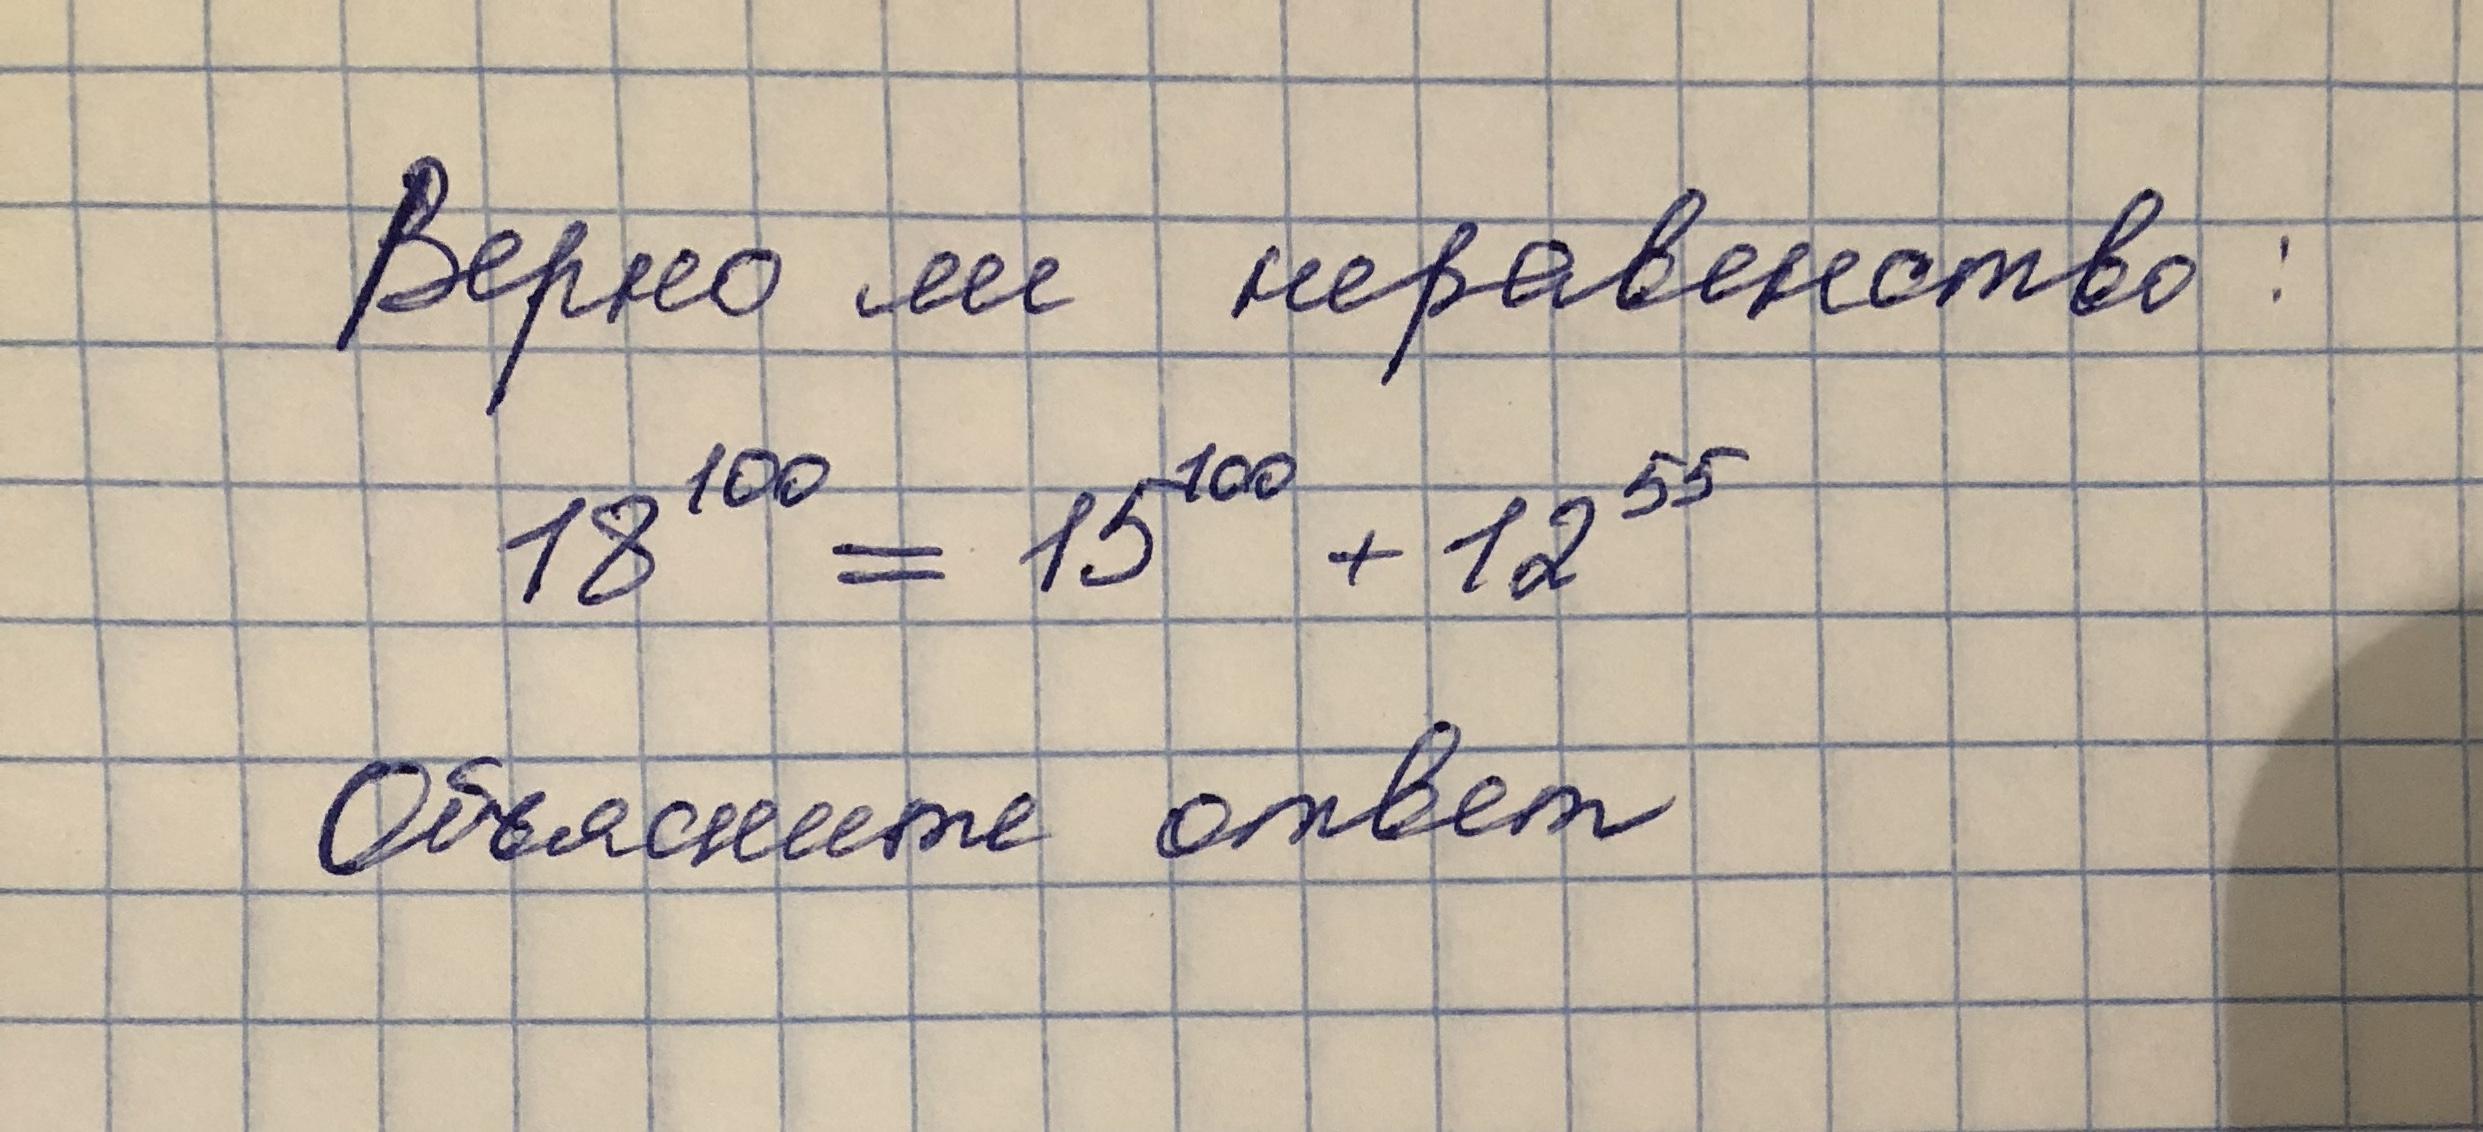 Верно ли неравенство:
18^100 = 15^100 + 12^55
Объясните ответ